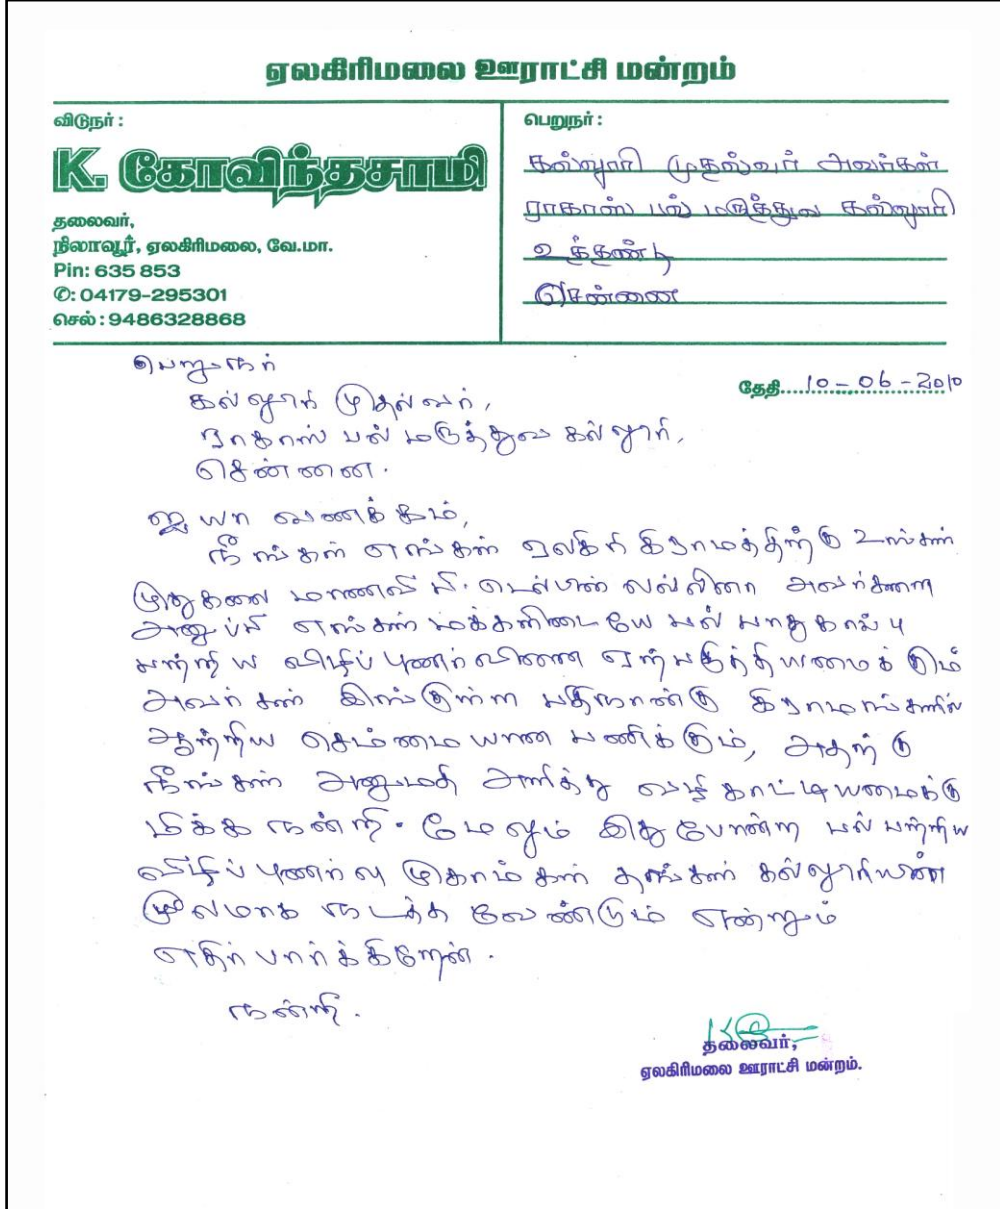 ஏலகிரிமலை ஊராட்சி மன்றம்
விடுநர் :
K. கோவிந்தசாமி
தலைவர்,
நிலாவூர், ஏலகிரிமலை, வே.மா.
Pin: 635 853
✆: 04179-295301
செல் : 9486328868
பெறுநர் :
கல்லூரி முதல்வர் அவர்கள்
ராகாஸ் பல் மருத்துவ கல்லூரி
உத்தண்டி
சென்னை
பெறுநர்
தேதி.....10-06-2010
கல்லூரி முதல்வர்,
ராகாஸ் பல் மருத்துவ கல்லூரி,
சென்னை.
ஐயா வணக்கம்,
நீங்கள் எங்கள் ஏலகிரி கிராமத்திற்கு உங்கள்
முதுகலை மாணவி பி. டெல்பின் லல்லினா அவர்களை
அனுப்பி எங்கள் மக்களிடையே பல் பாதுகாப்பு
பற்றிய விழிப்புணர்வினை ஏற்படுத்தியமைக்கும்
அவர்கள் இங்குள்ள பதினான்கு கிராமங்களில்
ஆற்றிய செம்மையான பணிக்கும், அதற்கு
நீங்கள் அனுமதி அளித்து வழிகாட்டியமைக்கு
மிக்க நன்றி. மேலும் இதுபோன்ற பல் பற்றிய
விழிப்புணர்வு முகாம்கள் தங்கள் கல்லூரியின்
மூலமாக நடத்த வேண்டும் என்றும்
எதிர்பார்க்கிறேன்.
நன்றி.
தலைவர்,
ஏலகிரிமலை ஊராட்சி மன்றம்.